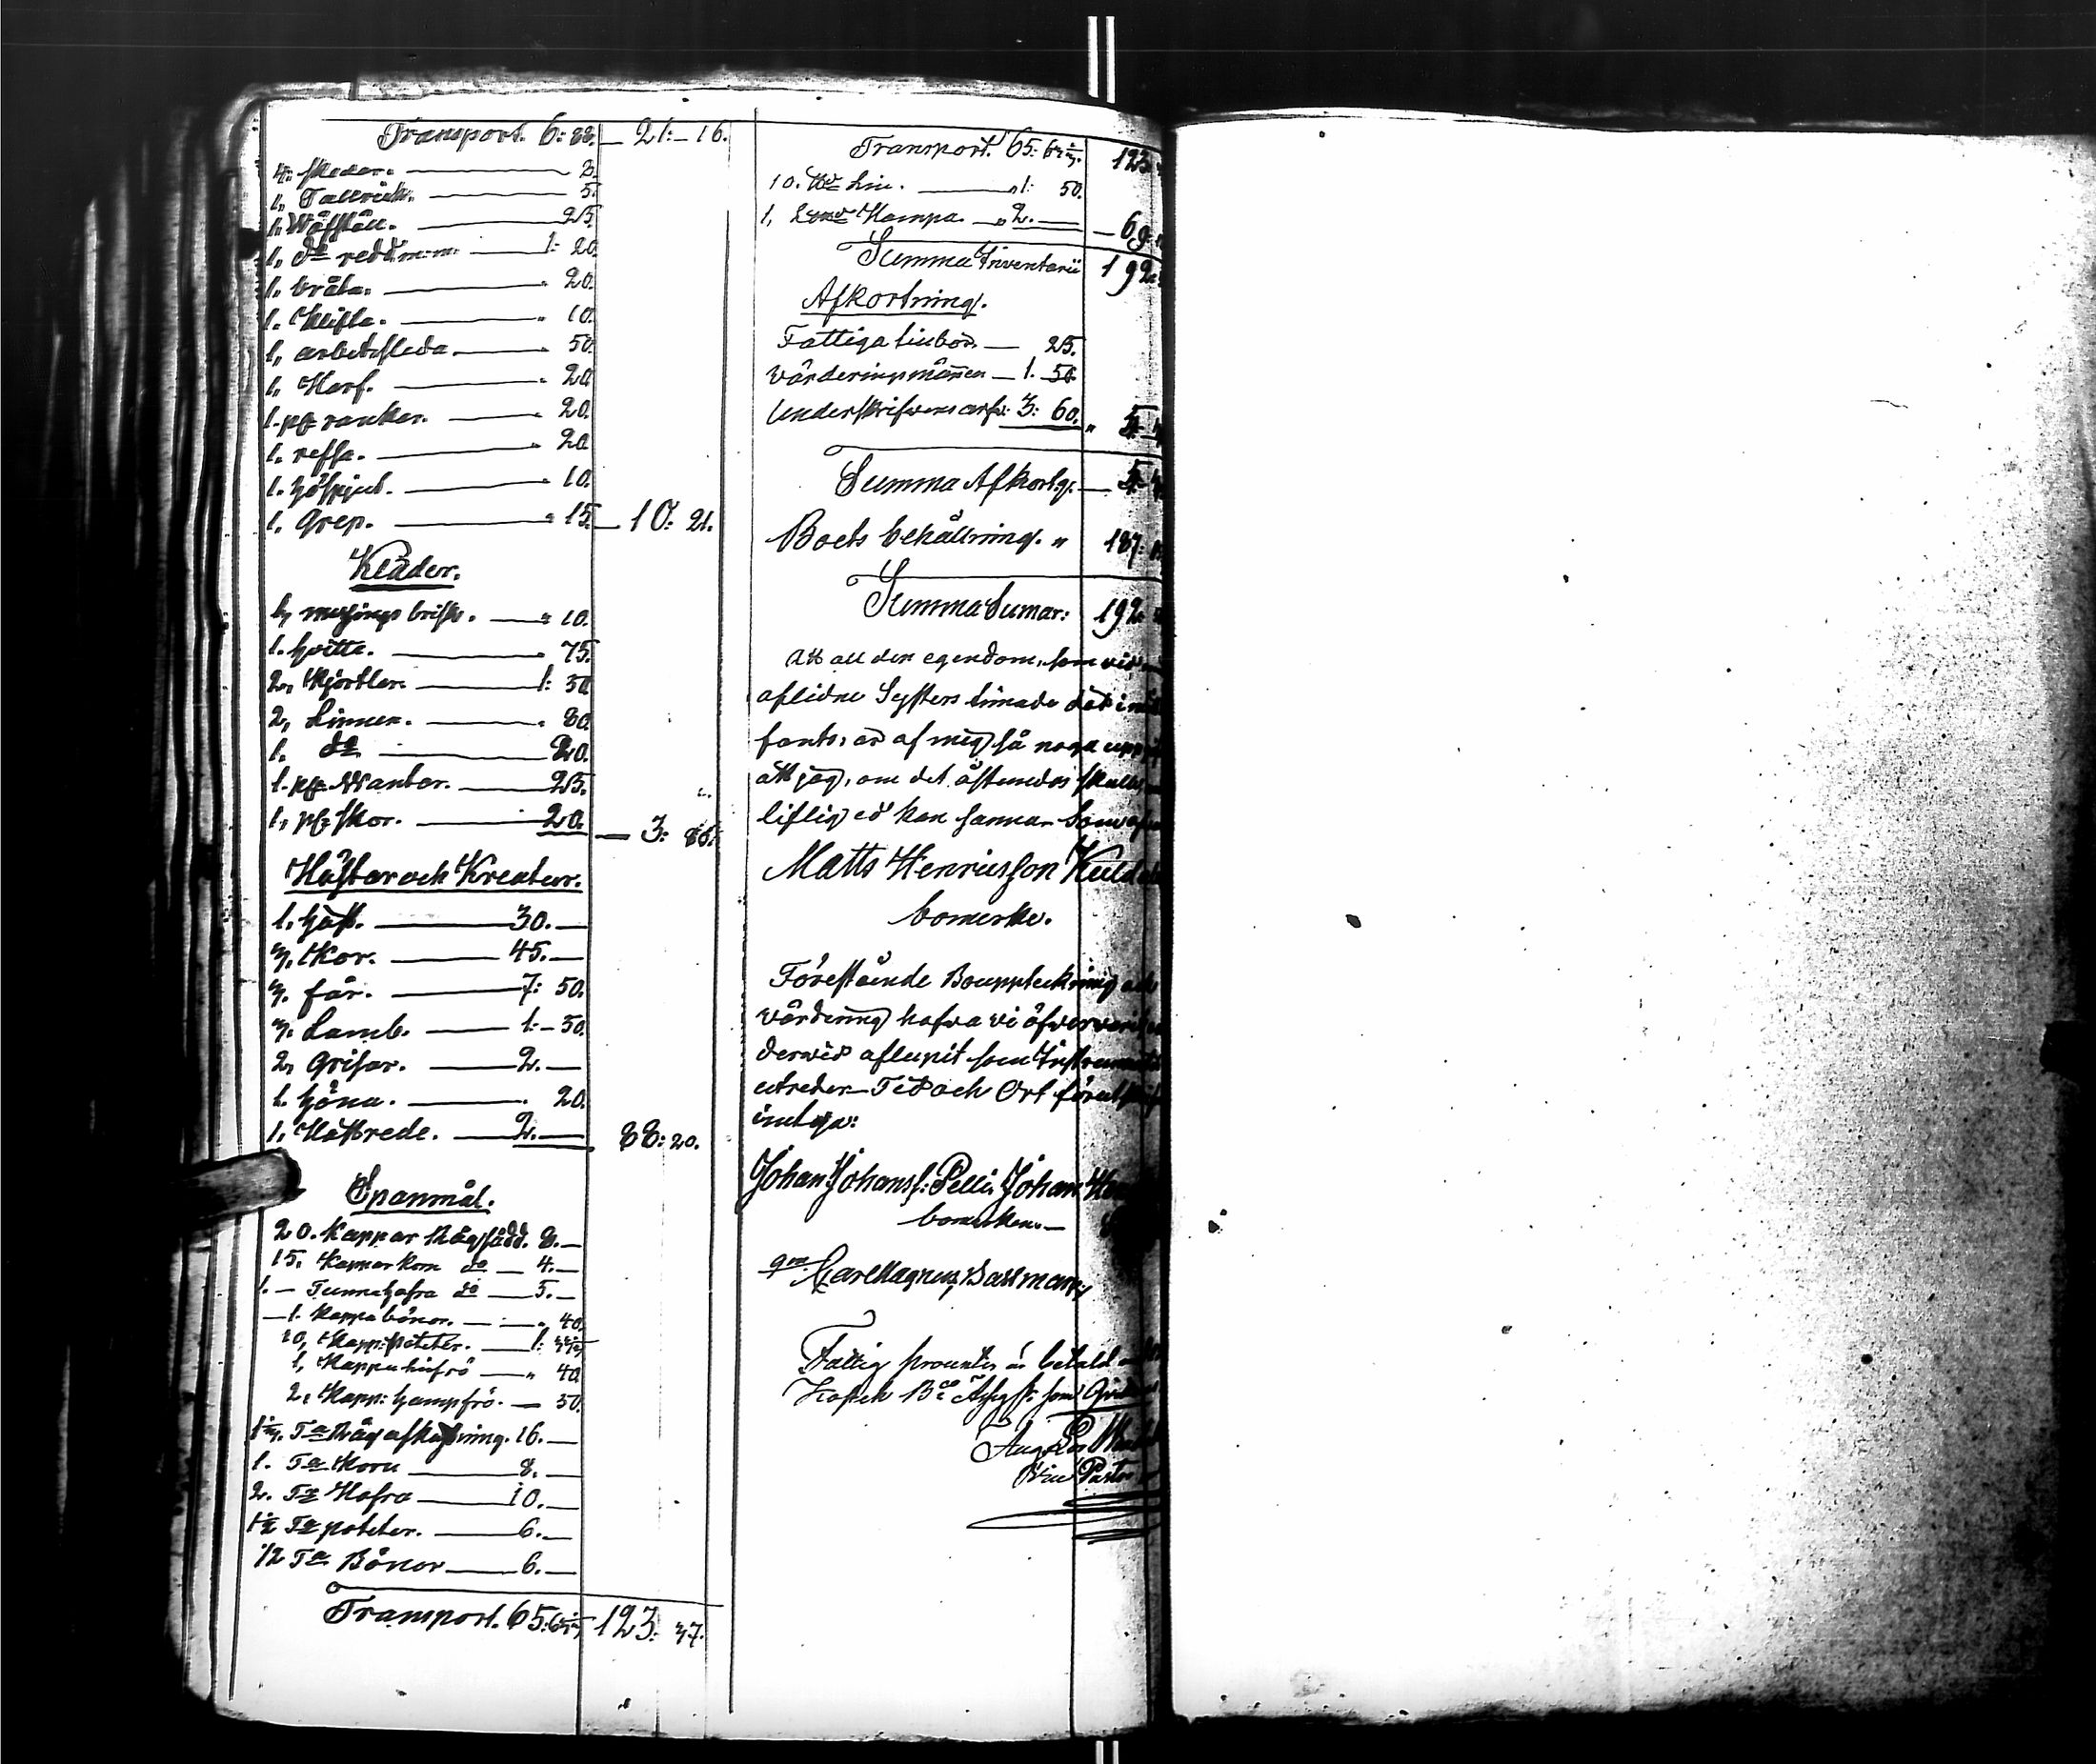 Transport. 6: 88. — 21:—16.
4. skedar. — 3.
1, Tallrick. — 5.
1. Wäfställ. — 25.
1, do redd — 1: 20.
1. bråta. — " 20.
1. Klifta. — " 10.
1, arbetsleda. — " 50.
1. Harf. — " 20.
1. pr rankor. — " 20.
1. reffa. — " 20
1. höspjut. — " 10.
1. Grep. — " 15. — 10: 21.
Kläder.
1, messings brisk. — " 10.
1. hvitta. — " 75.
2, Kjortlar. — 1: 50
2, Linnen. — " 80.
1. do — 20.
1. pr Wantar. — 25.
1, pr skor. — 20. — 3: 80.
Hästar och Kreatur.
1. häst. — 30. —
3. Kor. — 45. —
3. får. — 7: 50.
3. Lamb. — 1:—50.
2, Grisar. — 2. —
1. höna. — " 20.
1, Hästrede. — 2. — 88: 20.
Spanmål.
20. Kappar Rågsådd. 8. —
15. Kappar Korn do — 4. —
1. — Tunna hafra do — 5. —
— 1. Kappa bönor. — " 40.
10, Kapp: Poteter. — 1: 33⅓
1, Kappa linfrö — " 40
2, Kapp: hampfrö. — 50.
1⅓. Ta Råg afkastning. 16. —
1. Ta Korn — 8. —
2. Ta Hafra — 10. —
1½ Ta poteter. — 6. —
1/2 Ta Bönor — 6. —
Transport. 65: 63⅓ 123: 37.
Transport. 65: 63⅓. 123
10. Lin. — " 1: 50.
1, Hampa. — " 2. — — 69
Summa Inventarii 192
Afkortning.
Fattiga linbör — 25.
Värderingsmännen — 1. 50.
Underskrifvens arfv: 3: 60. " 5
Summa Afkortg. — 5
Boets behållning. " 187:
Summa Sumar: 192
Att all den egendom, som vid
aflidne Systers timade död i
fants, är af mig så noga upp
att jag, om det åstundas skulle,
liflig ed kan sanna. Som
Matts Henricsson Kuld
bomerke.
Förestående Bouppteckning och
värdering hafva vi öfvervarit
dervid aflupit som Instrumentet
utreder. Tid och Ort förut
intyga:
Johan Johanss: Pelli. Johan Hen
bomerken. —
gm Carl Magnus Bastman
Fattig procenter är betald
Kopek Bco Assig Sr som
Aug
Vice Pastor